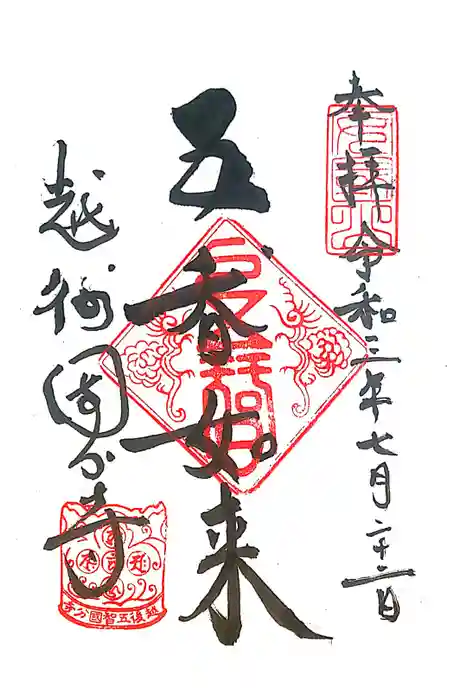 奉拝 令和三年七月二十一日
五智如来
越後國分寺
越後五智國分寺